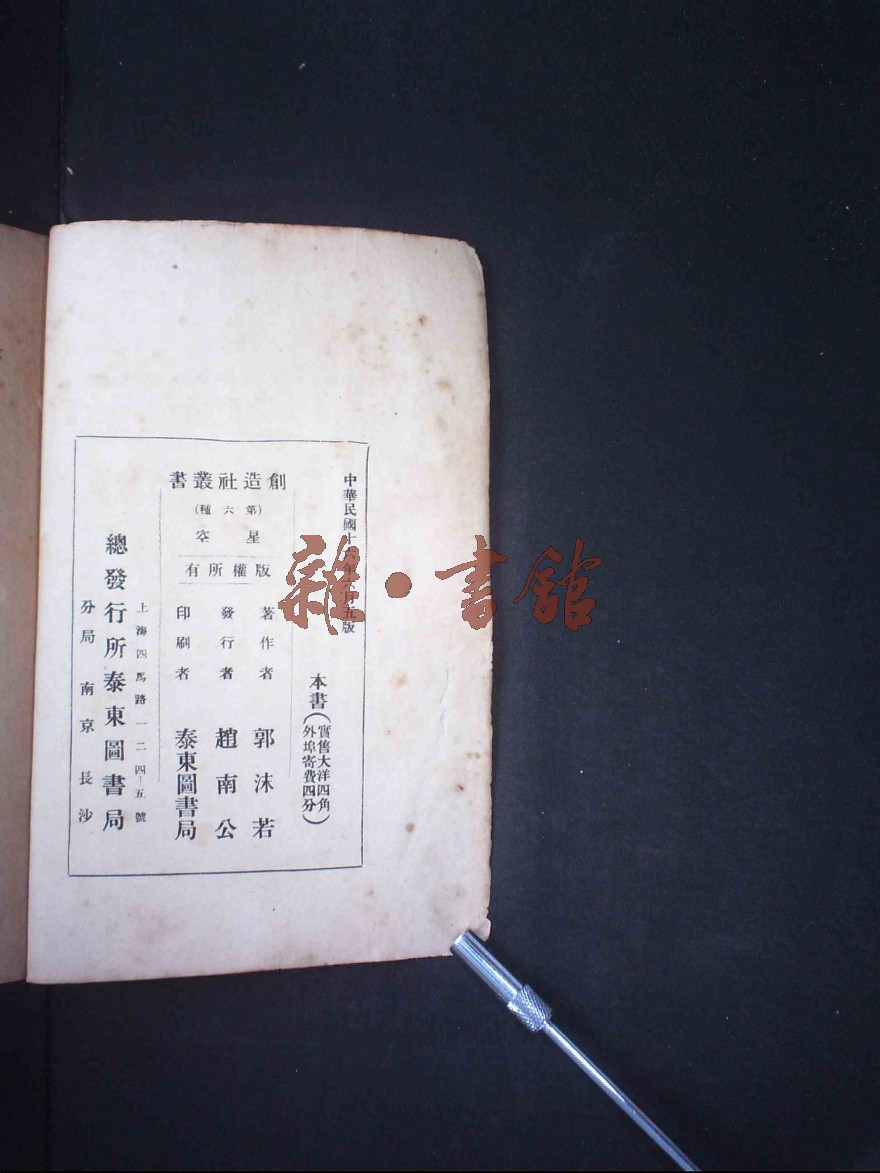 中華民國十六年六月五版
本書(實售大洋四角
外埠寄費四分)
創造社叢書
(第六種)
星空
版權所有
著作者 郭沫若
發行者 趙南公
印刷者 泰東圖書局
上海四馬路一二四—五號
總發行所泰東圖書局
分局 南京 長沙
雜·書館